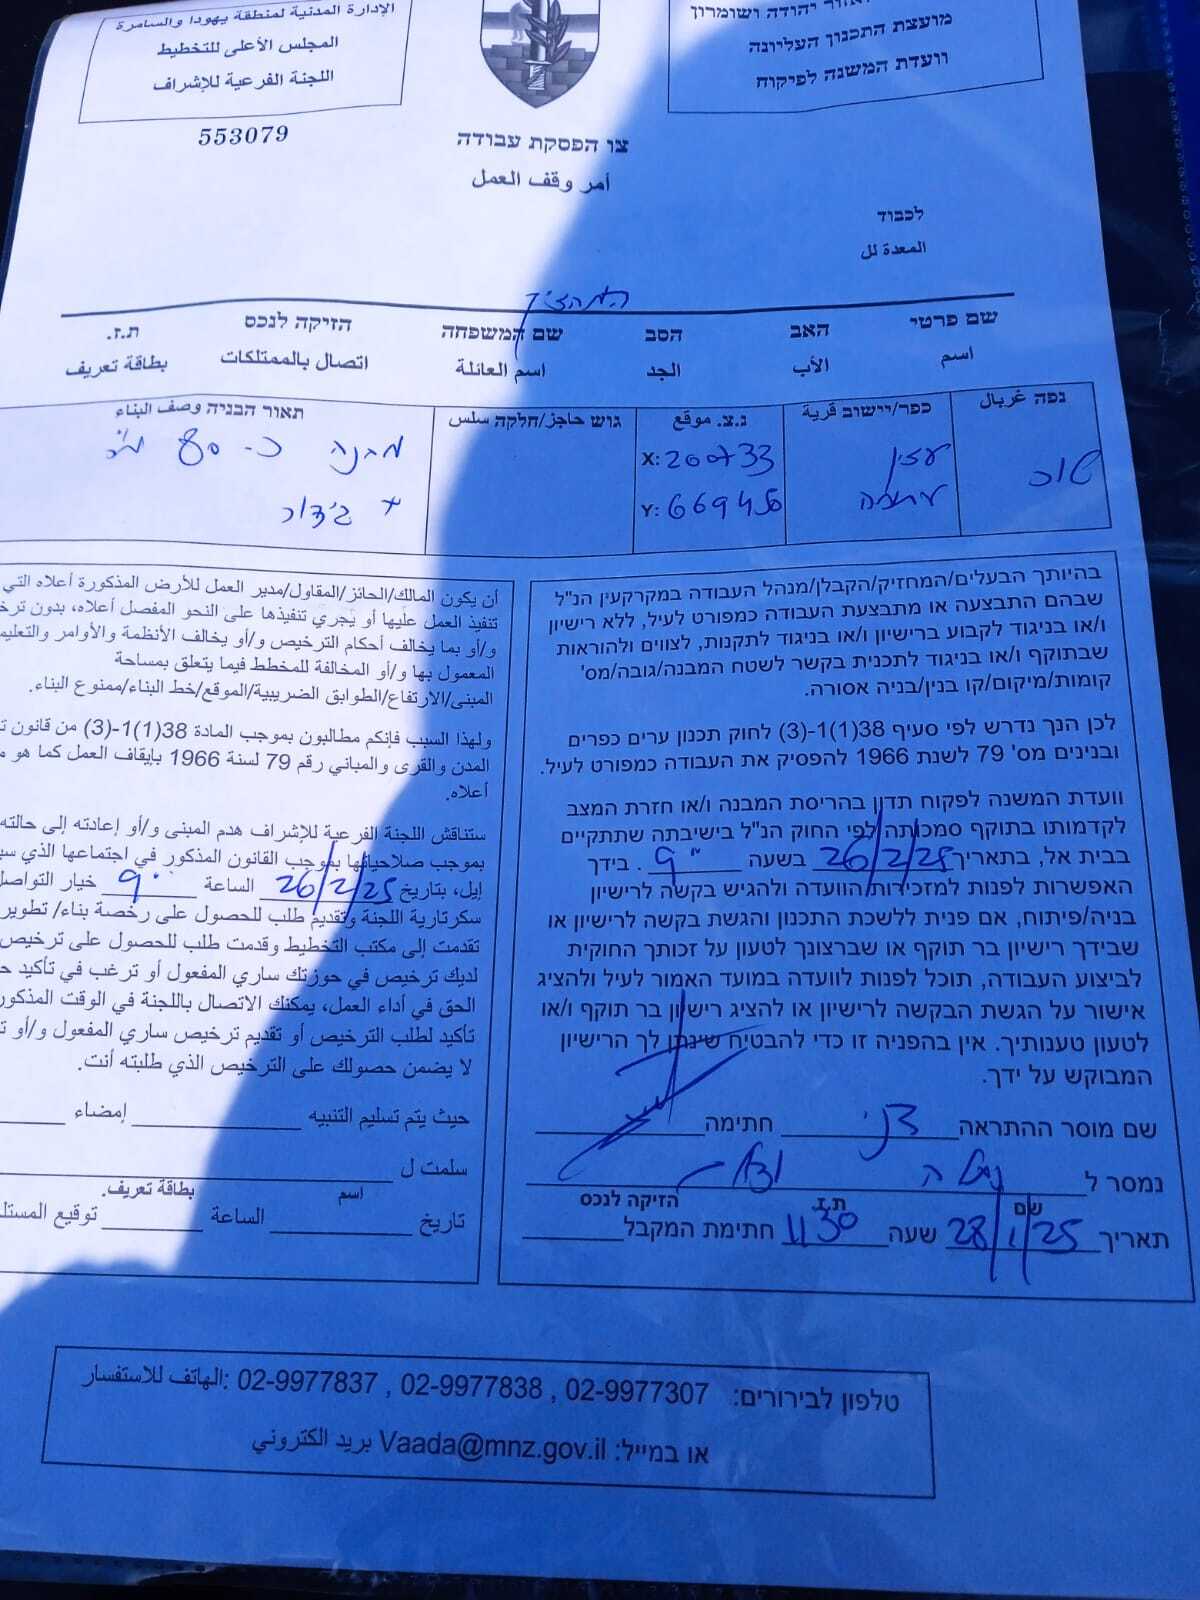 الإدارة المدنية لمنطقة يهودا والسامرة
المجلس الأعلى للتخطيط
اللجنة الفرعية للإشراف
יהודה ושומרון
מועצת התכנון העליונה
וועדת המשנה לפיקוח
553079
צו הפסקת עבודה
أمر وقف العمل
לכבוד
المعدة لل
המחזיק
שם פרטי האב הסב שם המשפחה הזיקה לנכס ת.ז.
اسم الأب الجد اسم العائلة اتصال بالممتلكات بطاقة تعريف
נפה غربال כפר/יישוב قرية נ.צ. موقع גוש حاجز/חלקה سلس תאור הבניה وصف البناء
שכם
עזון
עתמה
X: 200733
Y: 669456
מבנה כ- 80 מ"ר
+
בהיותך הבעלים/המחזיק/הקבלן/מנהל העבודה במקרקעין הנ"ל
שבהם התבצעה או מתבצעת העבודה כמפורט לעיל, ללא רישיון
ו/או בניגוד לקבוע ברישיון ו/או בניגוד לתקנות, לצווים ולהוראות
שבתוקף ו/או בניגוד לתכנית בקשר לשטח המבנה/גובה/מס'
קומות/מיקום/קו בנין/בניה אסורה.
לכן הנך נדרש לפי סעיף 38(1)-(3) לחוק תכנון ערים כפרים
ובנינים מס' 79 לשנת 1966 להפסיק את העבודה כמפורט לעיל.
וועדת המשנה לפקוח תדון בהריסת המבנה ו/או חזרת המצב
לקדמותו בתוקף סמכותה לפי החוק הנ"ל בישיבתה שתתקיים
בבית אל, בתאריך 26/2/25 בשעה 9⁰⁰. בידך
האפשרות לפנות למזכירות הוועדה ולהגיש בקשה לרישיון
בניה/פיתוח, אם פנית ללשכת התכנון והגשת בקשה לרישיון או
שבידך רישיון בר תוקף או שברצונך לטעון על זכותך החוקית
לביצוע העבודה, תוכל לפנות לוועדה במועד האמור לעיל ולהציג
אישור על הגשת הבקשה לרישיון או להציג רישיון בר תוקף ו/או
לטעון טענותיך. אין בהפניה זו כדי להבטיח שינתן לך הרישיון
המבוקש על ידך.
שם מוסר ההתראה חתימה
נמסר ל
שם ת.ז. הזיקה לנכס
תאריך 28/1/25 שעה 11 30 חתימת המקבל
أن يكون المالك/الحائز/المقاول/مدير العمل للأرض المذكورة أعلاه التي
تنفيذ العمل عليها أو يُجري تنفيذها على النحو المفصل أعلاه، بدون
و/أو بما يخالف أحكام الترخيص و/أو يخالف الأنظمة والأوامر
المعمول بها و/أو المخالفة للمخطط فيما يتعلق بمساحة
المبنى/الارتفاع/الطوابق الضريبية/الموقع/خط البناء/ممنوع البناء.
ولهذا السبب فإنكم مطالبون بموجب المادة 38(1)-(3) من قانون
المدن والقرى والمباني رقم 79 لسنة 1966 بإيقاف العمل كما هو
أعلاه.
ستناقش اللجنة الفرعية للإشراف هدم المبنى و/أو إعادته إلى حالته
بموجب صلاحياتها بموجب القانون المذكور في اجتماعها الذي
إيل، بتاريخ 26/2/25 الساعة 9⁰⁰ خيار
سكرتارية اللجنة وتقديم طلب للحصول على رخصة بناء/ تطوير
تقدمت إلى مكتب التخطيط وقدمت طلب للحصول على ترخيص
لديك ترخيص في حوزتك ساري المفعول أو ترغب في تأكيد
الحق في أداء العمل، يمكنك الاتصال باللجنة في الوقت
تأكيد لطلب الترخيص أو تقديم ترخيص ساري المفعول و/أو
لا يضمن حصولك على الترخيص الذي طلبته أنت.
حيث يتم تسليم التنبيه إمضاء
سلمت ل
اسم بطاقة تعريف.
تاريخ الساعة توقيع
טלפון לבירורים: 02-9977307 , 02-9977838 , 02-9977837 :الهاتف للاستفسار
או במייל: Vaada@mnz.gov.il بريد الكتروني